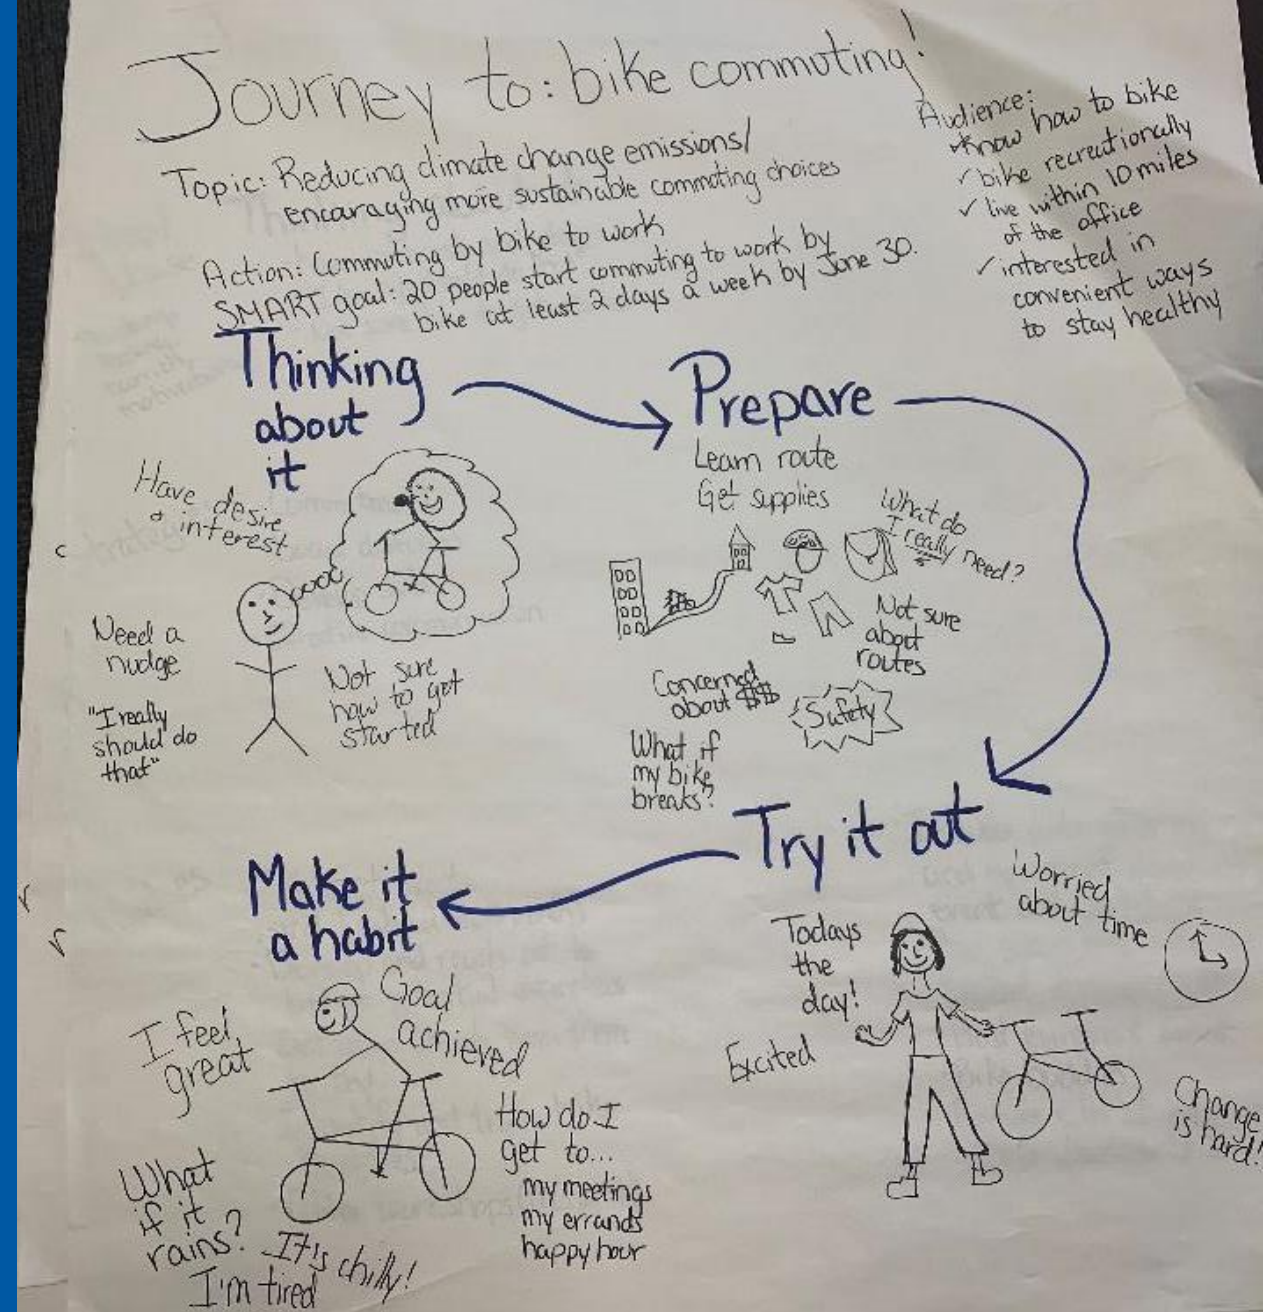 Journey to: bike commuting!
Topic: Reducing climate change emissions/
encouraging more sustainable commuting choices
Action: Commuting by bike to work
SMART goal: 20 people start commuting to work by
bike at least 2 days a week by June 30.
Audience:
✓know how to bike
✓ bike recreationally
✓ live within 10 miles
of the office
✓ interested in
convenient ways
to stay healthy
Thinking
about
it
Have desire
+ interest
Need a
nudge
"I really
should do
that"
Not sure
how to get
started
Prepare
Learn route
Get supplies
What do
I really need?
Not sure
about
routes
Concerned
about $$
Safety
What if
my bike
breaks?
Try it out
Worried
about time
Todays
the
day!
Excited
Change
is hard!
Make it
a habit
Goal
achieved
I feel
great
How do I
get to...
my meetings
my errands
happy hour
What
if it
rains?
It's chilly!
I'm tired